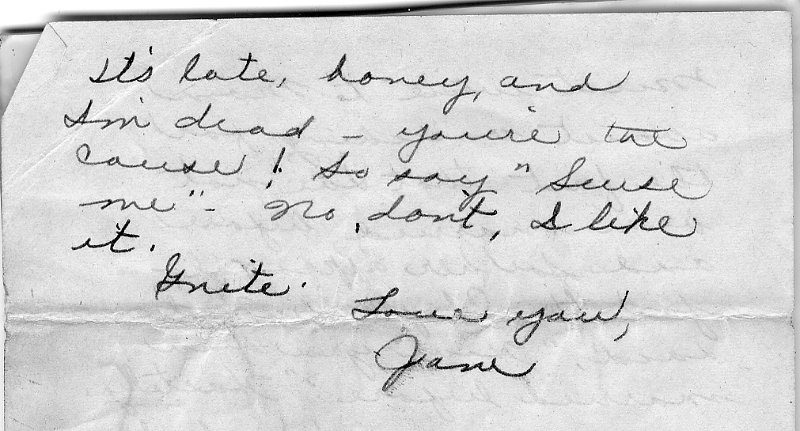 It's late, honey, and
I'm dead - you're the
cause! So say "Scuse
me" - No, don't, I like
it.
G'nite.
Love you,
Jane